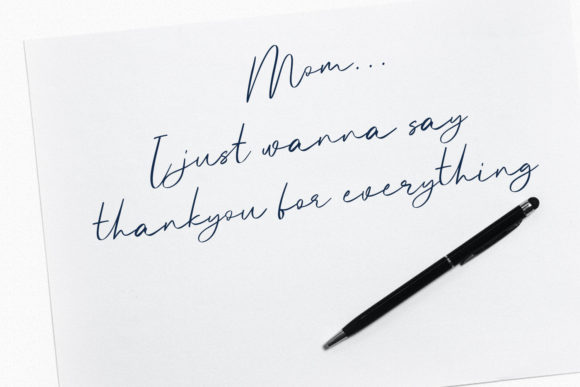 Mom...
I just wanna say
thankyou for everything